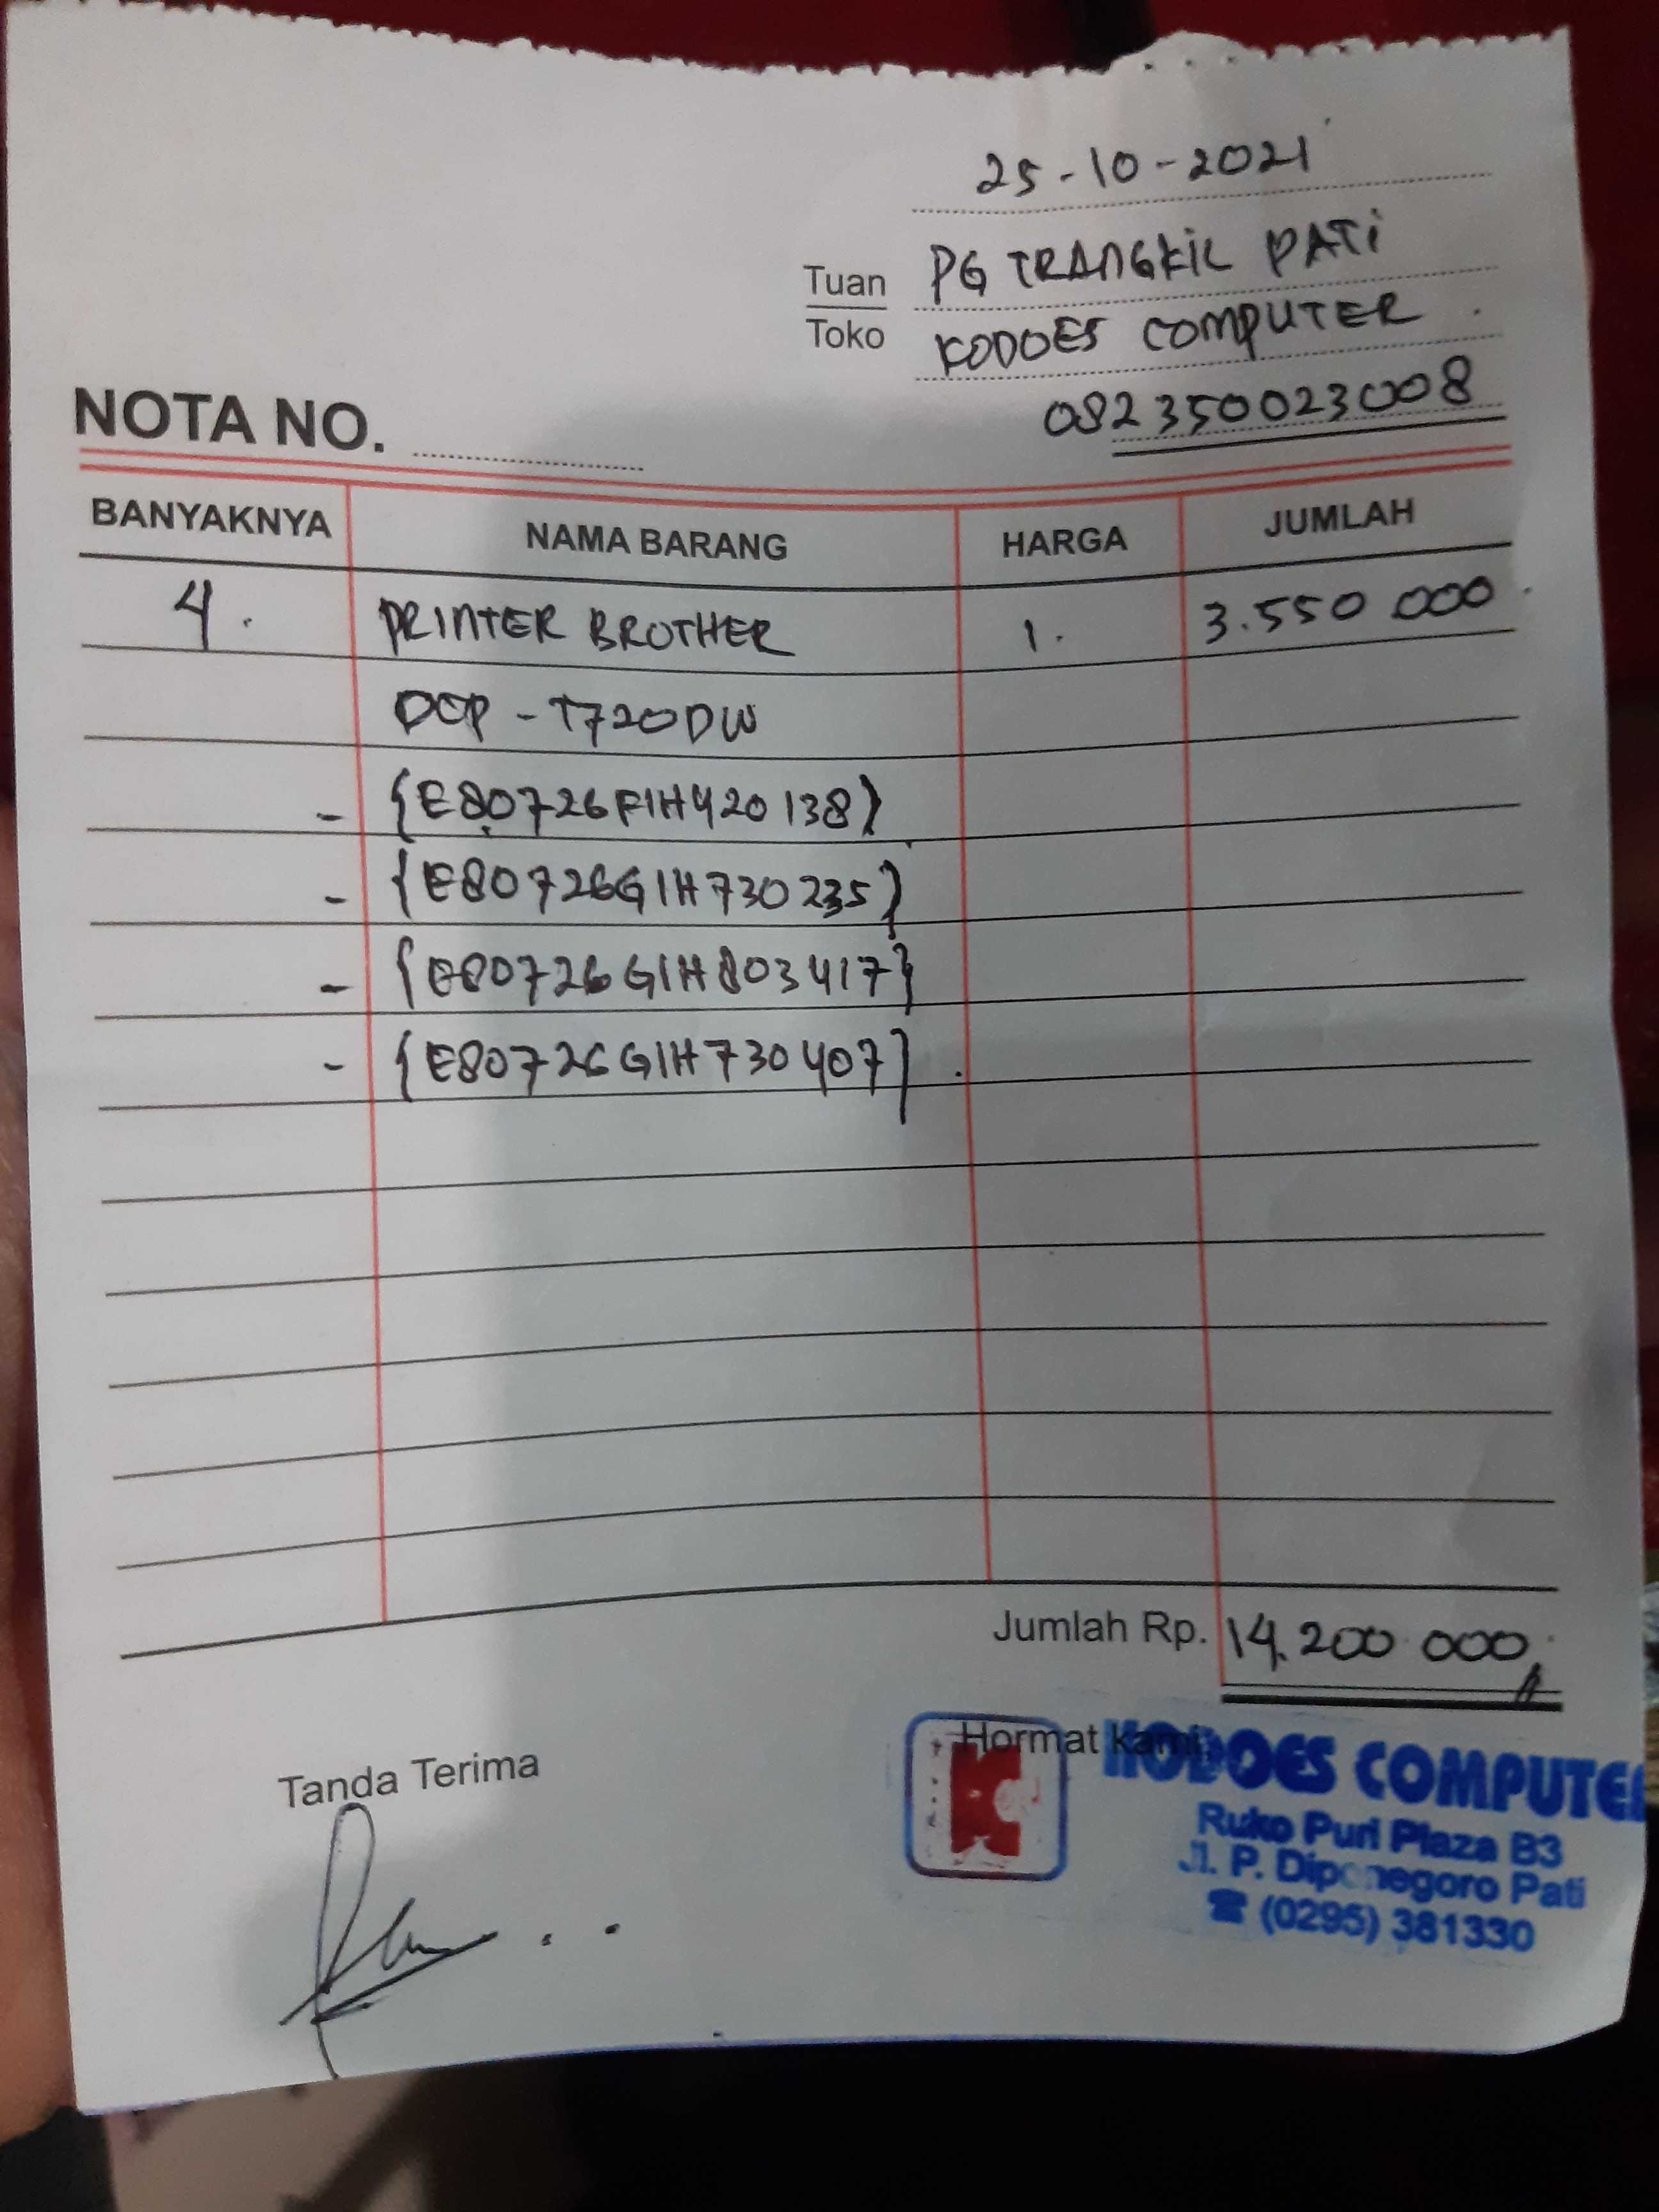 25-10-2021
Tuan PG TRANGKIL PATI
Toko KODOES COMPUTER
082350023008
NOTA NO.
BANYAKNYA NAMA BARANG HARGA JUMLAH
4. PRINTER BROTHER 1. 3.550 000
DCP - T720DW
- {E80726F1H420138}
- {E80726G1H730235}
- {E80726G1H803417}
- {E80726G1H730407}
Jumlah Rp. 14.200 000,
Tanda Terima
Hormat kami,
KODOES COMPUTER
Ruko Puri Plaza B3
Jl. P. Diponegoro Pati
☎ (0295) 381330